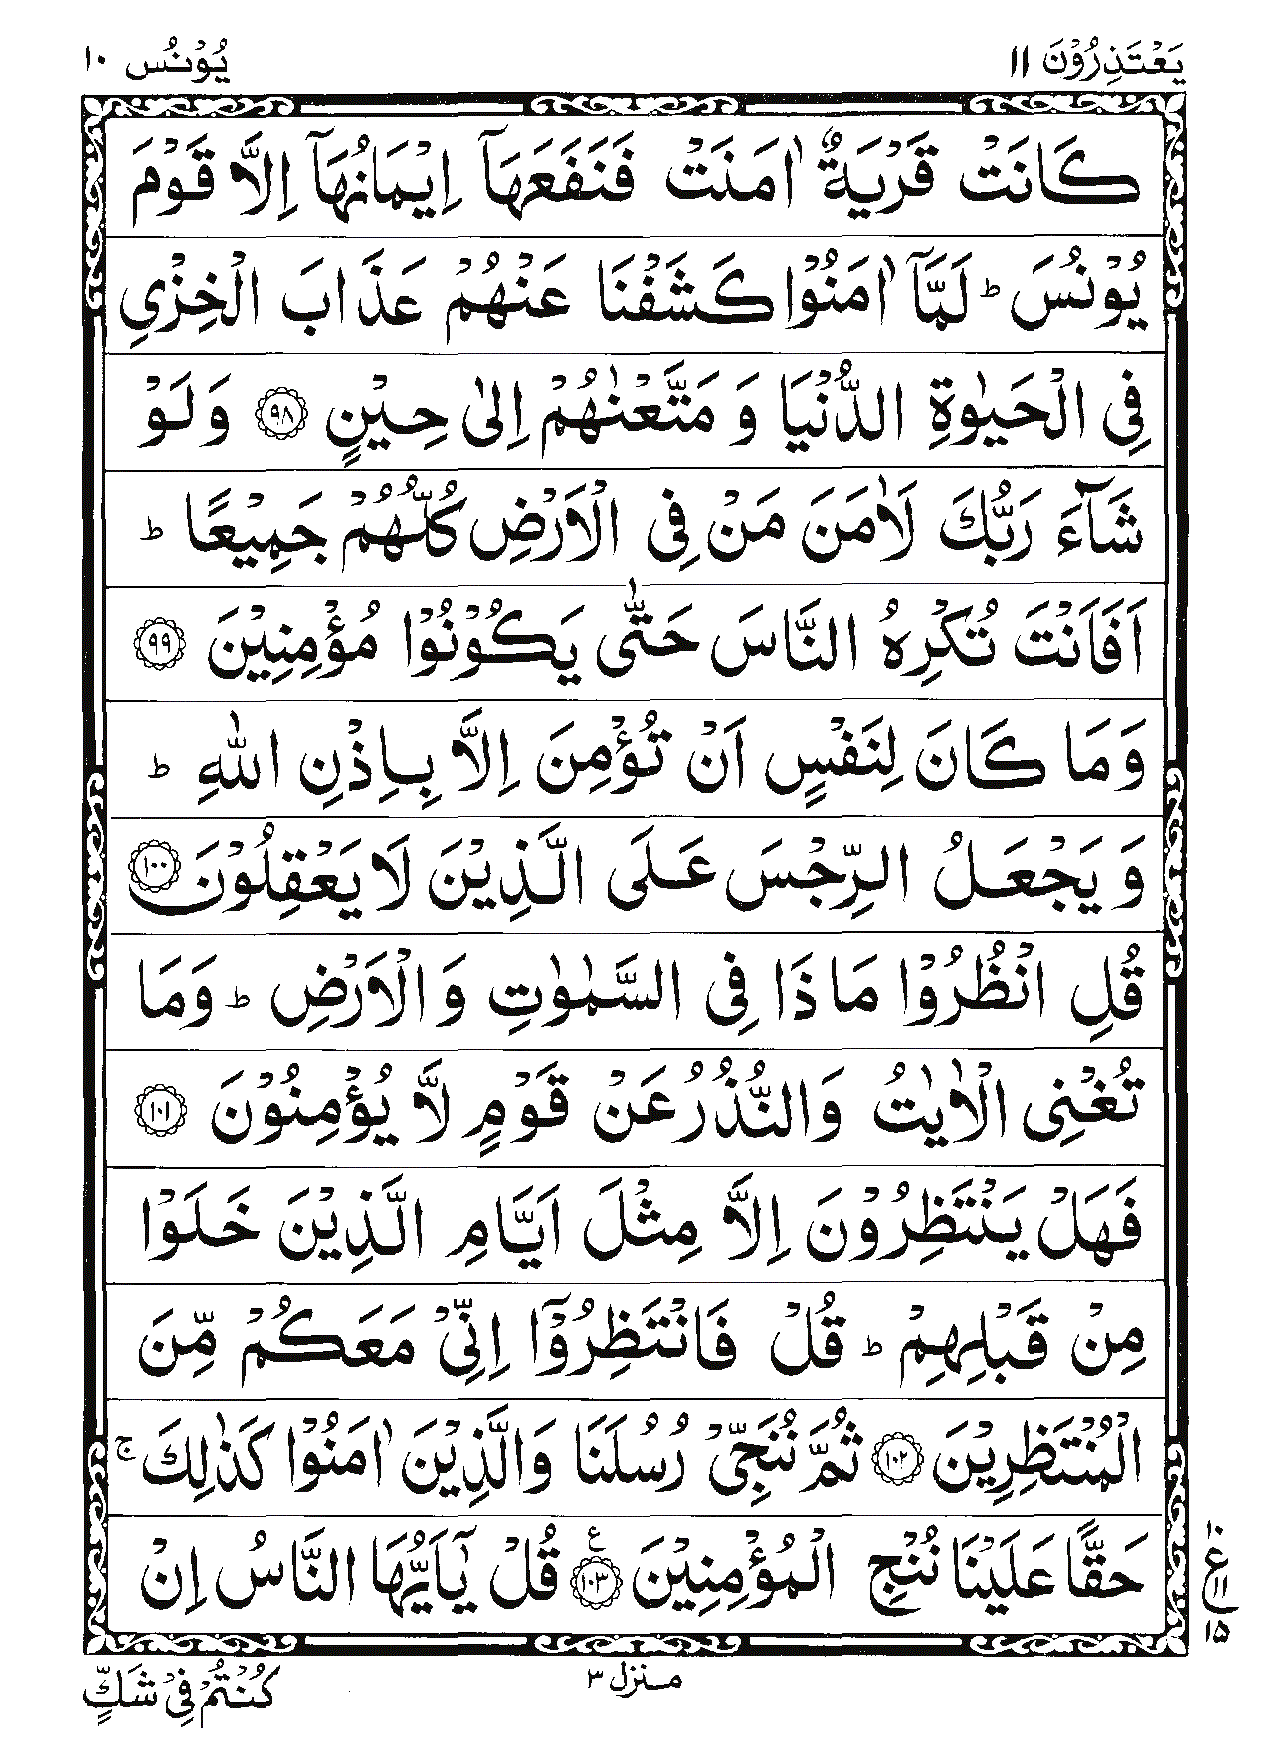 يَعْتَذِرُوْنَ ١١
يُوْنُس ١٠
كَانَتْ قَرْيَةٌ اٰمَنَتْ فَنَفَعَهَاۤ اِيْمَانُهَاۤ اِلَّا قَوْمَ
يُوْنُسَ ؕ لَمَّاۤ اٰمَنُوْا كَشَفْنَا عَنْهُمْ عَذَابَ الْخِزْيِ
فِى الْحَيٰوةِ الدُّنْيَا وَ مَتَّعْنٰهُمْ اِلٰى حِيْنٍ ﴿٩٨﴾ وَ لَوْ
شَآءَ رَبُّكَ لَاٰمَنَ مَنْ فِى الْاَرْضِ كُلُّهُمْ جَمِيْعًا ؕ
اَفَاَنْتَ تُكْرِهُ النَّاسَ حَتّٰى يَكُوْنُوْا مُؤْمِنِيْنَ ﴿٩٩﴾
وَ مَا كَانَ لِنَفْسٍ اَنْ تُؤْمِنَ اِلَّا بِاِذْنِ اللّٰهِ ؕ
وَ يَجْعَلُ الرِّجْسَ عَلَى الَّذِيْنَ لَا يَعْقِلُوْنَ ﴿١٠٠﴾
قُلِ انْظُرُوْا مَا ذَا فِى السَّمٰوٰتِ وَ الْاَرْضِ ؕ وَمَا
تُغْنِى الْاٰيٰتُ وَالنُّذُرُ عَنْ قَوْمٍ لَّا يُؤْمِنُوْنَ ﴿١٠١﴾
فَهَلْ يَنْتَظِرُوْنَ اِلَّا مِثْلَ اَيَّامِ الَّذِيْنَ خَلَوْا
مِنْ قَبْلِهِمْ ؕ قُلْ فَانْتَظِرُوْۤا اِنِّىْ مَعَكُمْ مِّنَ
الْمُنْتَظِرِيْنَ ﴿١٠٢﴾ ثُمَّ نُنَجِّىْ رُسُلَنَا وَالَّذِيْنَ اٰمَنُوْا كَذٰلِكَ ۚ
حَقًّا عَلَيْنَا نُنْجِ الْمُؤْمِنِيْنَ ﴿١٠٣﴾ ع قُلْ يٰۤاَيُّهَا النَّاسُ اِنْ
١٠
ع
١١
١٥
منزل ٣
كُنْتُمْ فِىْ شَكٍّ